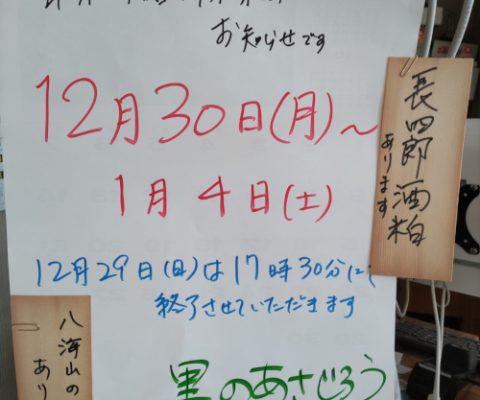 お知らせです
12月30日(月)～
1月4日(土)
12月29日(日)は17時30分に
終了させていただきます
里のあさじろう
長四郎酒粕
あります
八海山の
あり